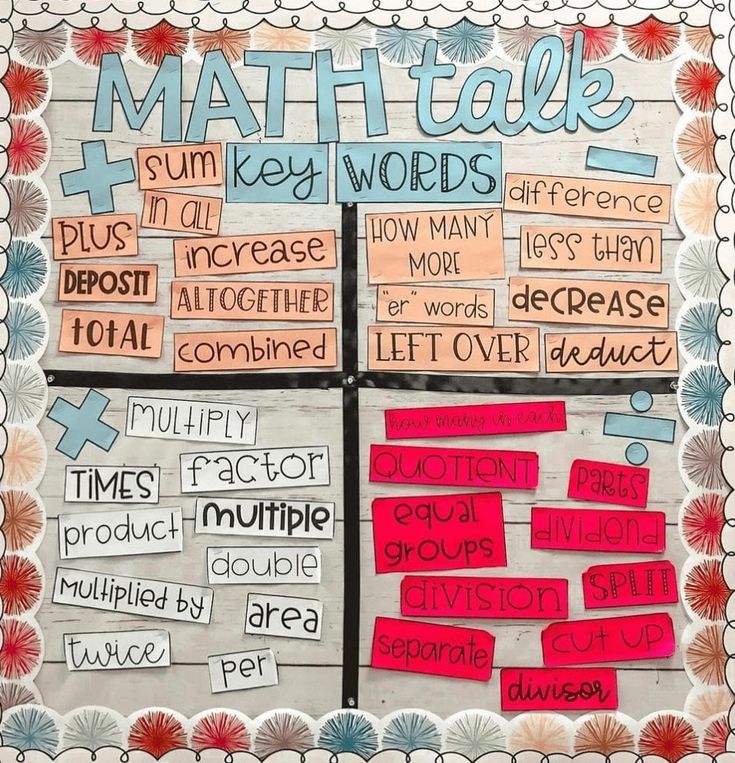 MATH talk
Key WORDS
+
sum
in all
PLUS
increase
DEPOSIT
ALTOGETHER
total
combined
−
difference
HOW MANY
MORE
less than
"er" words
decrease
LEFT OVER
deduct
×
MULTIPLY
TIMES
factor
product
multiple
double
Multiplied by
area
twice
per
÷
how many in each
QUOTIENT
PARTS
equal
groups
dividend
division
SPLIT
separate
CUT UP
divisor